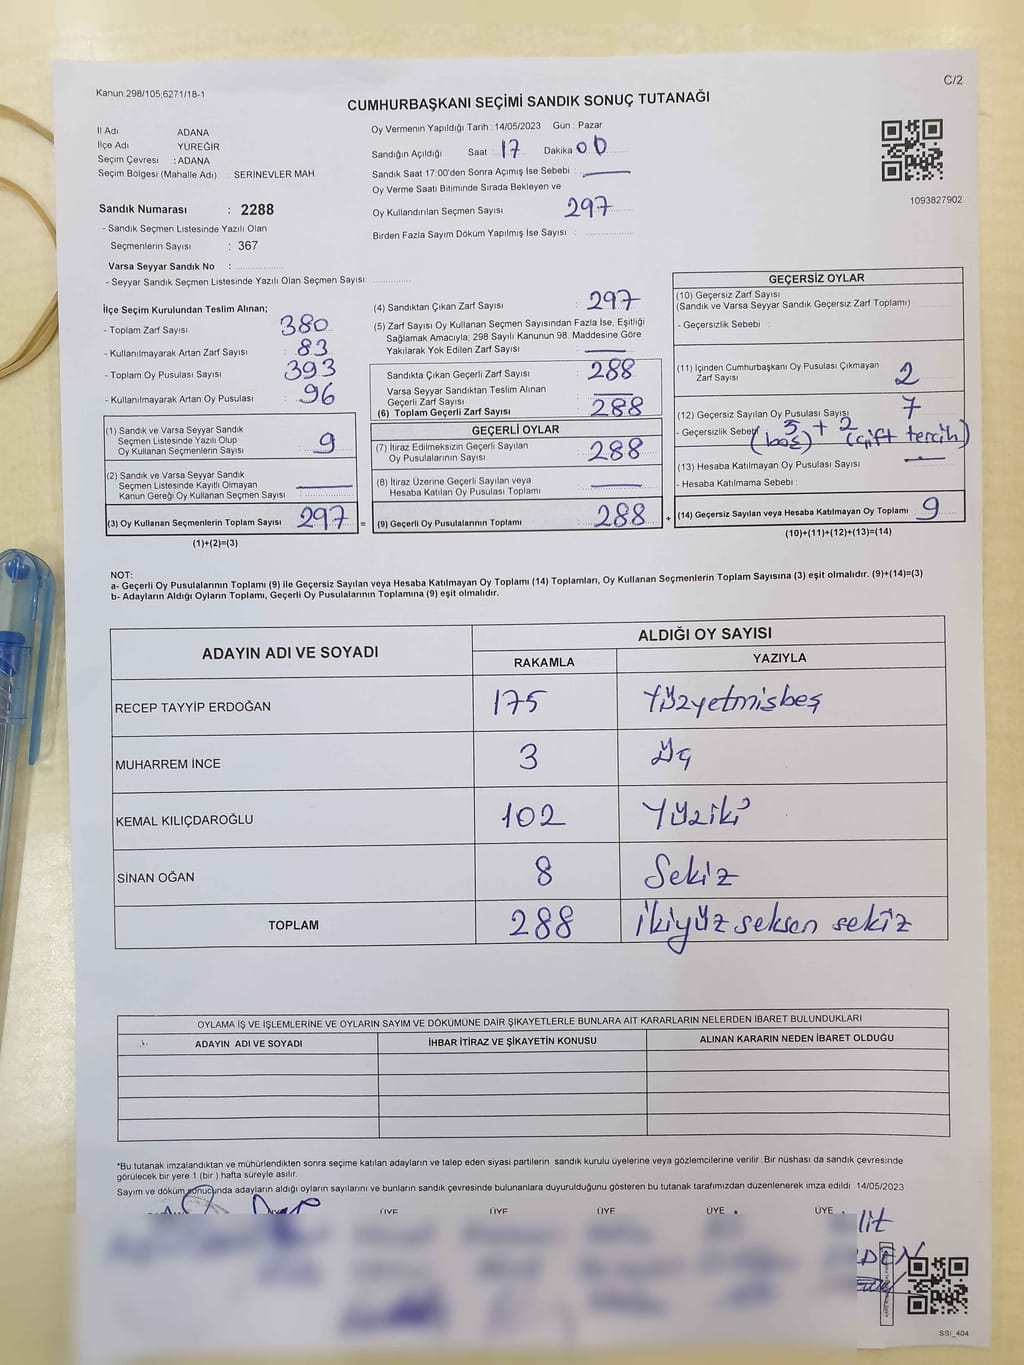 C/2
Kanun:298/105,6271/18-1
CUMHURBAŞKANI SEÇİMİ SANDIK SONUÇ TUTANAĞI
İl Adı ADANA
İlçe Adı YÜREĞİR
Seçim Çevresi : ADANA
Seçim Bölgesi (Mahalle Adı) : SERİNEVLER MAH.
Sandık Numarası : 2288
- Sandık Seçmen Listesinde Yazılı Olan
Seçmenlerin Sayısı : 367
Varsa Seyyar Sandık No :
- Seyyar Sandık Seçmen Listesinde Yazılı Olan Seçmen Sayısı:
Oy Vermenin Yapıldığı Tarih : 14/05/2023 Gün : Pazar
Sandığın Açıldığı Saat : 17 Dakika 00
Sandık Saat 17:00'den Sonra Açımış İse Sebebi :
Oy Verme Saati Bitiminde Sırada Bekleyen ve
Oy Kullandırılan Seçmen Sayısı 297
Birden Fazla Sayım Döküm Yapılmış İse Sayısı :
1093827902
İlçe Seçim Kurulundan Teslim Alınan;
- Toplam Zarf Sayısı 380
- Kullanılmayarak Artan Zarf Sayısı : 83
- Toplam Oy Pusulası Sayısı 393
- Kullanılmayarak Artan Oy Pusulası : 96
(1) Sandık ve Varsa Seyyar Sandık
Seçmen Listesinde Yazılı Olup
Oy Kullanan Seçmenlerin Sayısı : 9
(2) Sandık ve Varsa Seyyar Sandık
Seçmen Listesinde Kayıtlı Olmayan
Kanun Gereği Oy Kullanan Seçmen Sayısı :
(3) Oy Kullanan Seçmenlerin Toplam Sayısı 297 =
(1)+(2)=(3)
(4) Sandıktan Çıkan Zarf Sayısı : 297
(5) Zarf Sayısı Oy Kullanan Seçmen Sayısından Fazla İse, Eşitliği
Sağlamak Amacıyla; 298 Sayılı Kanunun 98. Maddesine Göre
Yakılarak Yok Edilen Zarf Sayısı :
Sandıkta Çıkan Geçerli Zarf Sayısı : 288
Varsa Seyyar Sandıktan Teslim Alınan
Geçerli Zarf Sayısı :
(6) Toplam Geçerli Zarf Sayısı 288
GEÇERLİ OYLAR
(7) İtiraz Edilmeksizin Geçerli Sayılan
Oy Pusulalarının Sayısı : 288
(8) İtiraz Üzerine Geçerli Sayılan veya
Hesaba Katılan Oy Pusulası Toplamı :
(9) Geçerli Oy Pusulalarının Toplamı : 288 +
GEÇERSİZ OYLAR
(10) Geçersiz Zarf Sayısı
(Sandık ve Varsa Seyyar Sandık Geçersiz Zarf Toplamı)
- Geçersizlik Sebebi :
(11) İçinden Cumhurbaşkanı Oy Pusulası Çıkmayan
Zarf Sayısı 2
(12) Geçersiz Sayılan Oy Pusulası Sayısı 7
- Geçersizlik Sebebi 5 (boş) + 2 (çift tercih)
(13) Hesaba Katılmayan Oy Pusulası Sayısı
- Hesaba Katılmama Sebebi :
(14) Geçersiz Sayılan veya Hesaba Katılmayan Oy Toplamı : 9
(10)+(11)+(12)+(13)=(14)
NOT:
a- Geçerli Oy Pusulalarının Toplamı (9) ile Geçersiz Sayılan veya Hesaba Katılmayan Oy Toplamı (14) Toplamları, Oy Kullanan Seçmenlerin Toplam Sayısına (3) eşit olmalıdır. (9)+(14)=(3)
b- Adayların Aldığı Oyların Toplamı, Geçerli Oy Pusulalarının Toplamına (9) eşit olmalıdır.
ADAYIN ADI VE SOYADI
ALDIĞI OY SAYISI
RAKAMLA YAZIYLA
RECEP TAYYİP ERDOĞAN 175 Yüzyetmişbeş
MUHARREM İNCE 3 Üç
KEMAL KILIÇDAROĞLU 102 Yüziki
SİNAN OĞAN 8 Sekiz
TOPLAM 288 ikiyüz seksen sekiz
OYLAMA İŞ VE İŞLEMLERİNE VE OYLARIN SAYIM VE DÖKÜMÜNE DAİR ŞİKAYETLERLE BUNLARA AİT KARARLARIN NELERDEN İBARET BULUNDUKLARI
ADAYIN ADI VE SOYADI İHBAR İTİRAZ VE ŞİKAYETİN KONUSU ALINAN KARARIN NEDEN İBARET OLDUĞU
*Bu tutanak imzalandıktan ve mühürlendikten sonra seçime katılan adayların ve talep eden siyasi partilerin sandık kurulu üyelerine veya gözlemcilerine verilir. Bir nüshası da sandık çevresinde
görülecek bir yere 1 (bir ) hafta süreyle asılır.
Sayım ve döküm sonucunda adayların aldığı oyların sayılarını ve bunların sandık çevresinde bulunanlara duyurulduğunu gösteren bu tutanak tarafımızdan düzenlenerek imza edildi 14/05/2023
ÜYE ÜYE ÜYE ÜYE ÜYE
SSİ_404